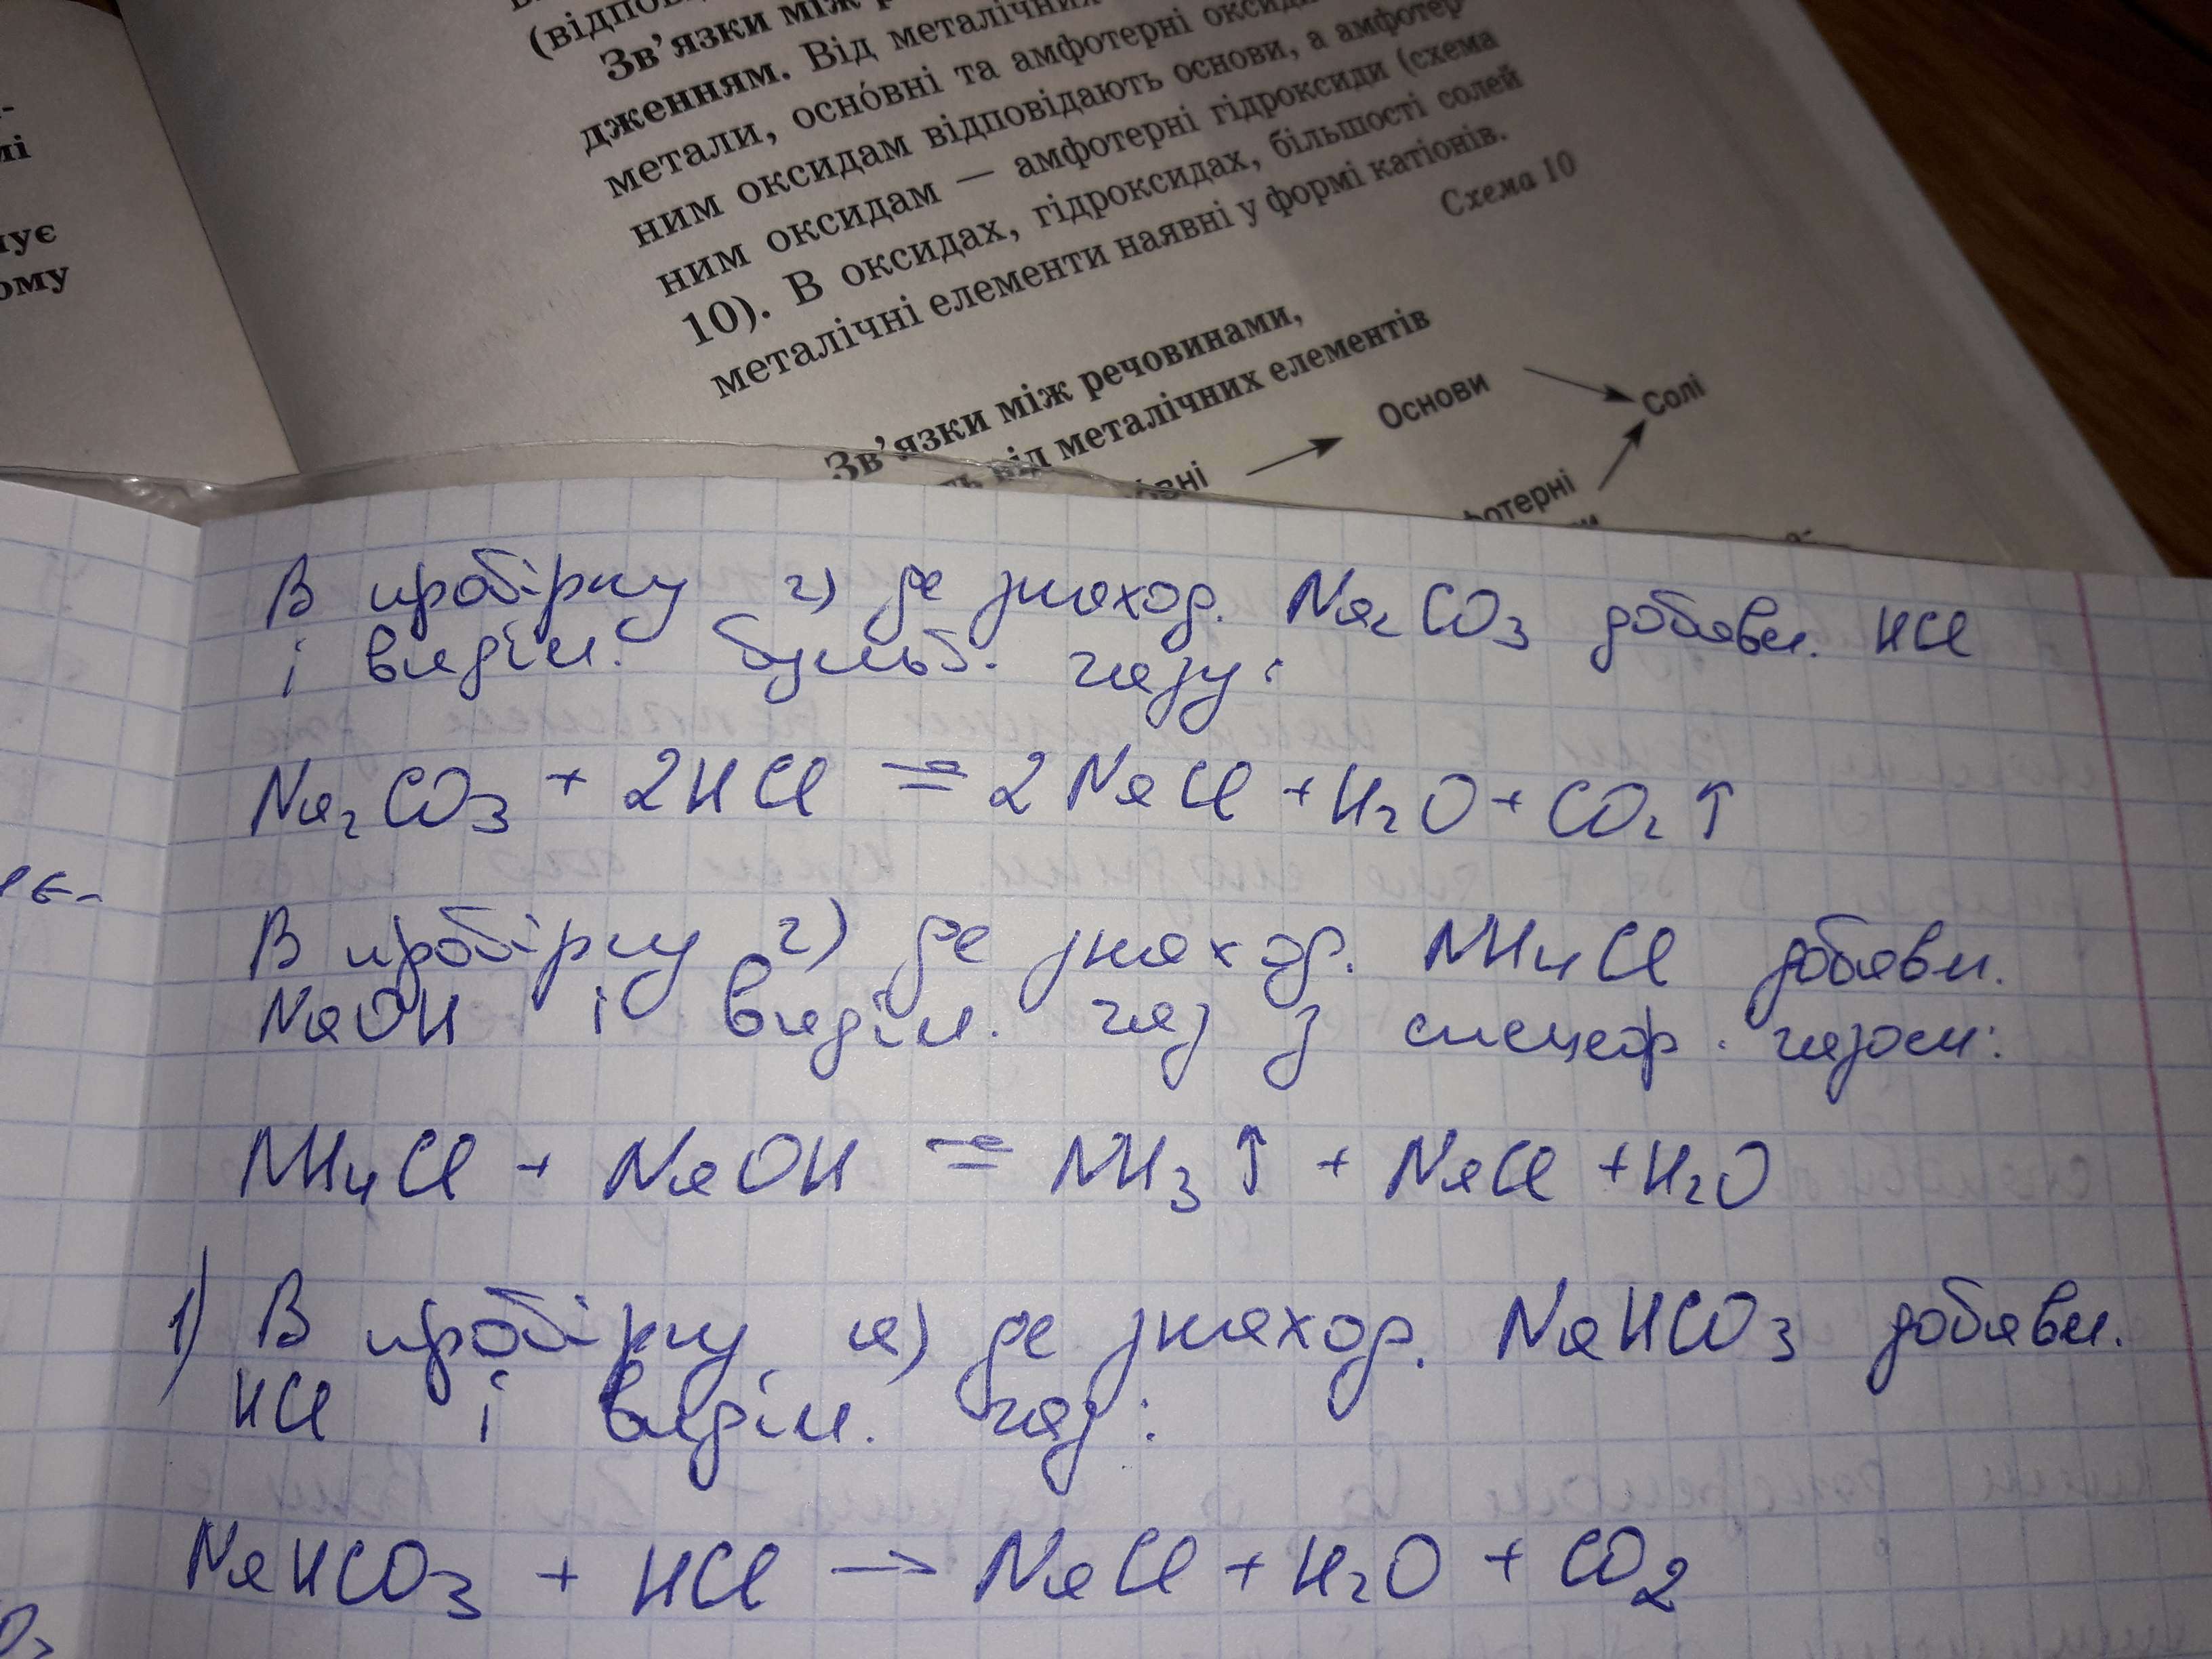 (відпов
Зв’язки між р
дженням. Від металічних
метали, осно́вні та амфотерні оксид
ним оксидам відповідають основи, а амфотер-
ним оксидам — амфотерні гідроксиди (схема
10). В оксидах, гідроксидах, більшості солей
металічні елементи наявні у формі катіонів.
Схема 10
Зв’язки між речовинами,
від металічних елементів
Основи
Солі
вні
фотерні
ому
В пробірку г) де знаход. Na₂CO₃ добавл. HCl
і виділ. бульб. газу:
Na₂CO₃ + 2HCl = 2NaCl + H₂O + CO₂↑
В пробірку г) де знаход. NH₄Cl добавл.
NaOH і виділ. газ з спецеф. газом:
NH₄Cl + NaOH = NH₃↑ + NaCl + H₂O
1) В пробірку а) де знаход. NaHCO₃ добавл.
HCl і виділ. газ:
NaHCO₃ + HCl → NaCl + H₂O + CO₂